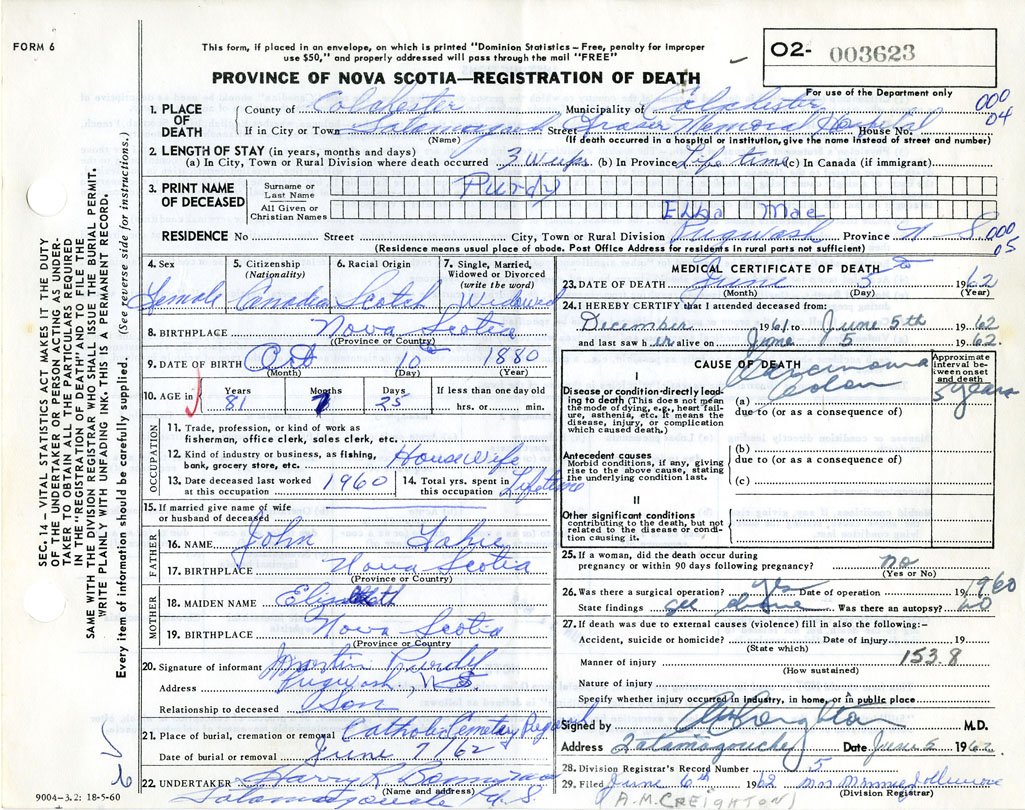 FORM 6
This form, if placed in an envelope, on which is printed "Dominion Statistics – Free, penalty for improper
use $50," and properly addressed will pass through the mail "FREE"
PROVINCE OF NOVA SCOTIA—REGISTRATION OF DEATH
O2- 003623
For use of the Department only
000
04
1. PLACE OF DEATH
County of Colchester Municipality of Colchester
If in City or Town Tatamagouche Street Fraser Memorial Hospital House No.
(Name) (If death occurred in a hospital or institution, give the name instead of street and number)
2. LENGTH OF STAY (in years, months and days)
(a) In City, Town or Rural Division where death occurred 3 Weeks (b) In Province Life time (c) In Canada (if immigrant)
3. PRINT NAME OF DECEASED
Surname or Last Name Purdy
All Given or Christian Names Elba Mae
RESIDENCE No Street City, Town or Rural Division Pugwash Province N-S
000
05
(Residence means usual place of abode. Post Office Address for residents in rural parts not sufficient)
4. Sex Female
5. Citizenship (Nationality) Canadian
6. Racial Origin Scotch
7. Single, Married, Widowed or Divorced (write the word) Widowed
8. BIRTHPLACE Nova Scotia
(Province or Country)
9. DATE OF BIRTH Oct 10 1880
(Month) (Day) (Year)
10. AGE in Years 81 Months 7 Days 25 If less than one day old hrs. or min.
OCCUPATION
11. Trade, profession, or kind of work as
fisherman, office clerk, sales clerk, etc.
12. Kind of industry or business, as fishing,
bank, grocery store, etc. Housewife
13. Date deceased last worked at this occupation 1960
14. Total yrs. spent in this occupation Lifetime
15. If married give name of wife
or husband of deceased
FATHER
16. NAME John
17. BIRTHPLACE Nova Scotia
(Province or Country)
MOTHER
18. MAIDEN NAME Elizabeth
19. BIRTHPLACE Nova Scotia
(Province or Country)
20. Signature of informant Martin Purdy
Address Pugwash, N.S.
Relationship to deceased Son
21. Place of burial, cremation or removal Catholic Cemetery Pugwash
Date of burial or removal June 7/62
22. UNDERTAKER Harry R
(Name and address)
Tatamagouche N.S.
9004-3.2: 18-5-60
MEDICAL CERTIFICATE OF DEATH
23. DATE OF DEATH June 5 1962
(Month) (Day) (Year)
24. I HEREBY CERTIFY that I attended deceased from:
December 1961 to June 5th 1962
and last saw her alive on June 5 1962.
CAUSE OF DEATH
Approximate interval between onset and death
I
Disease or condition directly leading to death (This does not mean the mode of dying, e.g., heart failure, asthenia, etc. It means the disease, injury, or complication which caused death.)
(a) Carcinoma Colon 5 years
due to (or as a consequence of)
Antecedent causes
Morbid conditions, if any, giving rise to the above cause, stating the underlying condition last.
(b)
due to (or as a consequence of)
(c)
II
Other significant conditions
contributing to the death, but not related to the disease or condition causing it.
25. If a woman, did the death occur during
pregnancy or within 90 days following pregnancy? no
(Yes or No)
26. Was there a surgical operation? yes Date of operation 1960
State findings see above Was there an autopsy? no
27. If death was due to external causes (violence) fill in also the following:-
Accident, suicide or homicide? Date of injury 19
(State which)
Manner of injury 153.8
(How sustained)
Nature of injury
Specify whether injury occurred in industry, in home, or in public place
Signed by AMCreighton M.D.
Address Tatamagouche Date June 5 1962.
28. Division Registrar's Record Number 5
29. Filed June 6th 1962
(Division Registrar)
(A.M. CREIGHTON)
SEC. 14 – VITAL STATISTICS ACT MAKES IT THE DUTY
OF THE UNDERTAKER OR PERSON ACTING AS UNDER-
TAKER TO OBTAIN ALL THE PARTICULARS REQUIRED
IN THE "REGISTRATION OF DEATH" AND TO FILE THE
SAME WITH THE DIVISION REGISTRAR WHO SHALL ISSUE THE BURIAL PERMIT.
WRITE PLAINLY WITH UNFADING INK. THIS IS A PERMANENT RECORD.
Every item of information should be carefully supplied. (See reverse side for instructions.)